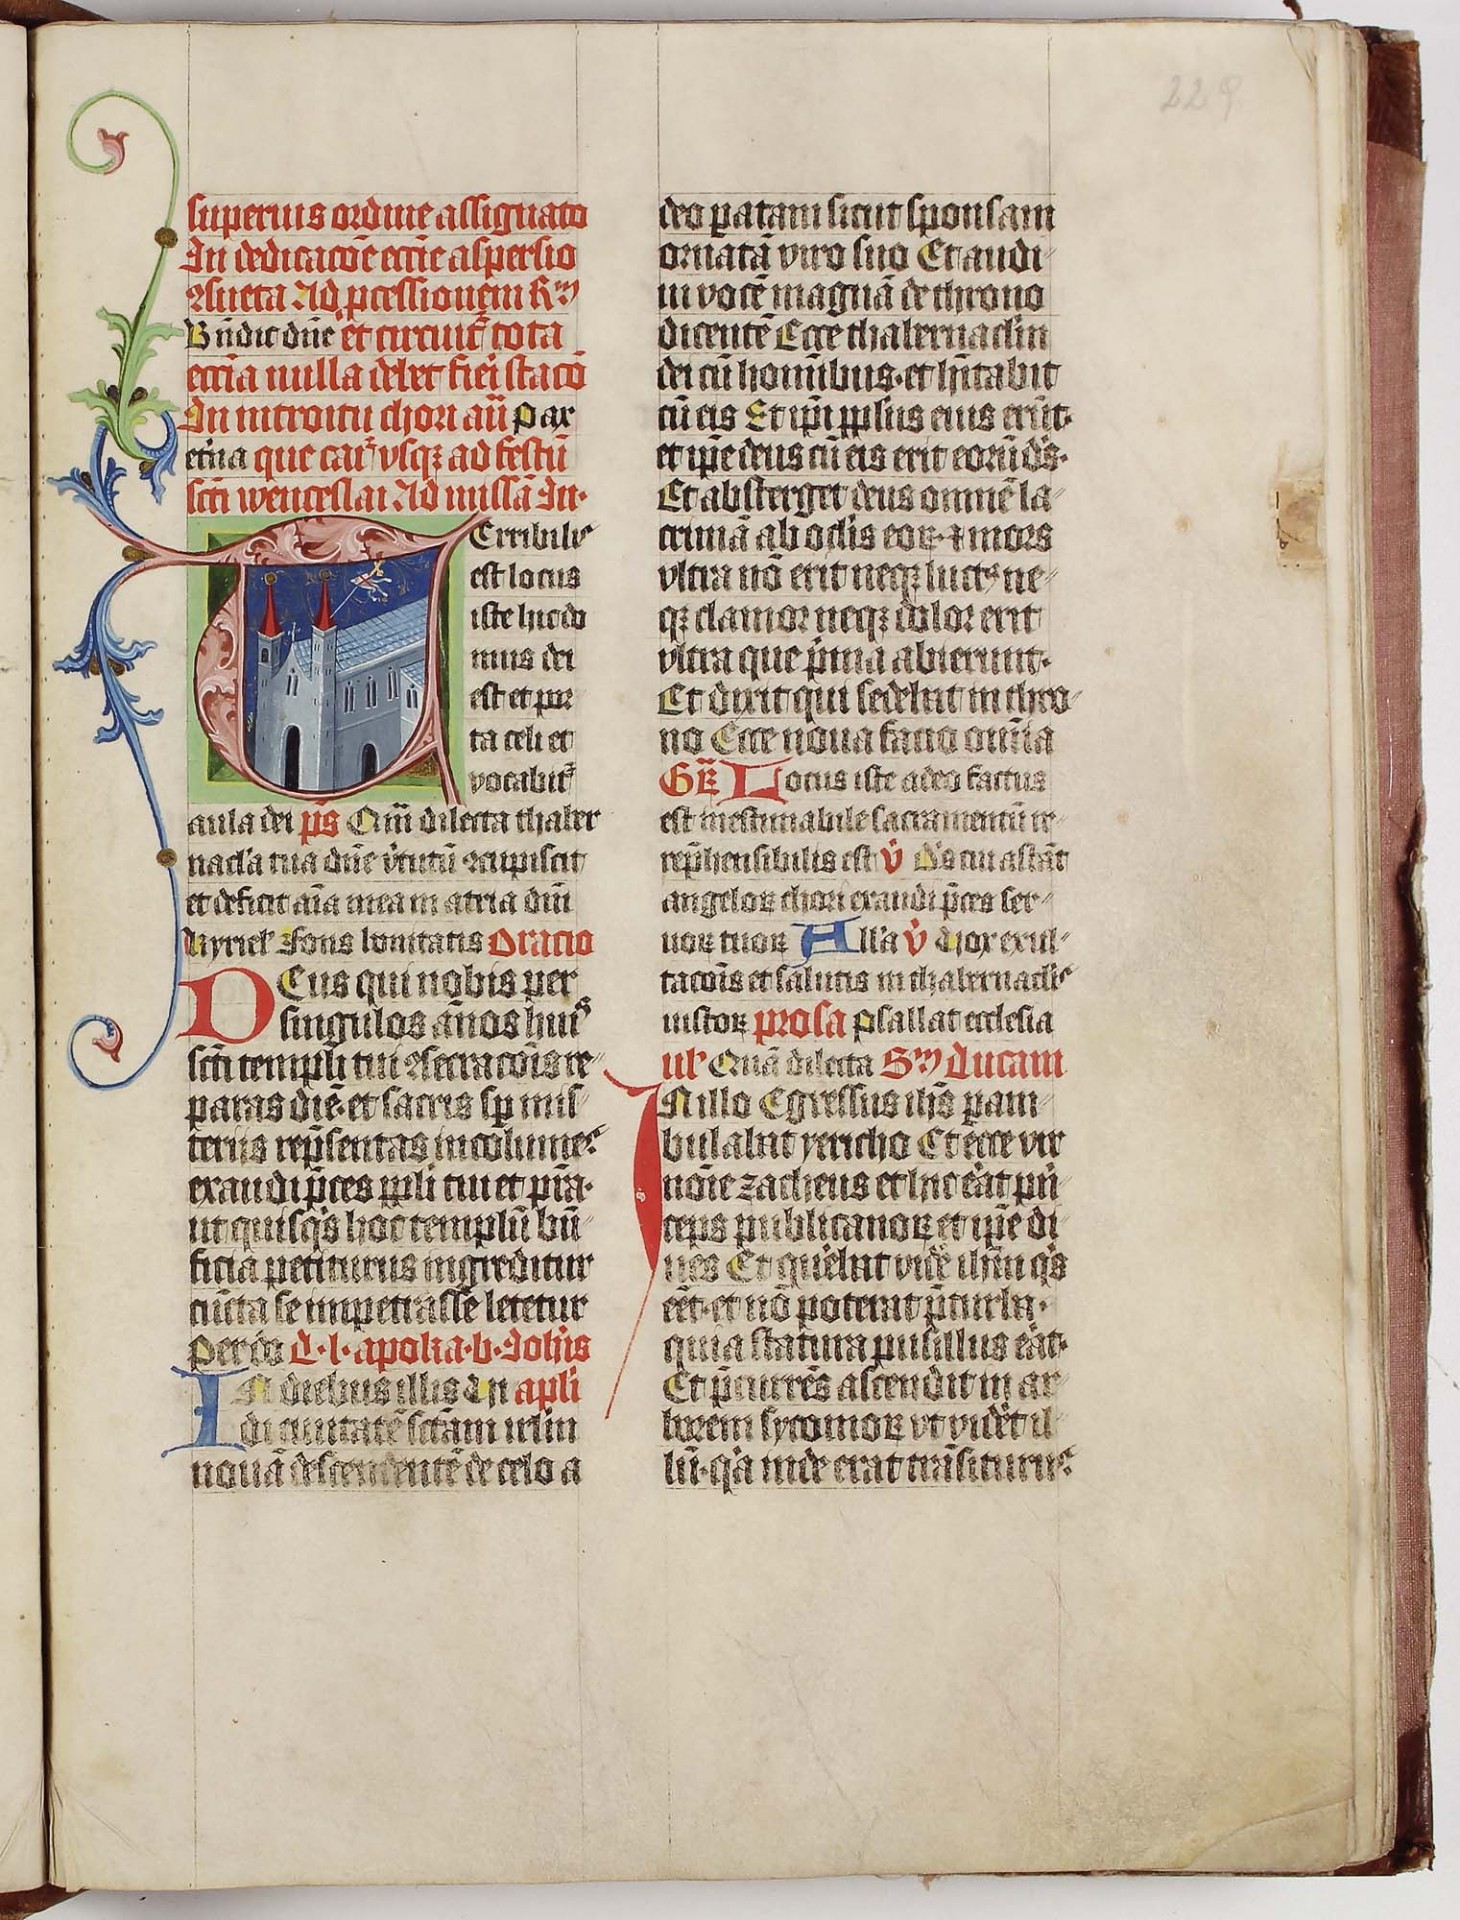 229
superius ordine assignato
In dedicacōe eccīe aspersio
ꝯsueta Ad ꝓcessionem Rm
Bn̄dic dn̄e et circuit̄ tota
eccīa nulla debet fiei stacō
In introitu chori an̄ Pax
et'na que cat̄ vsqꝫ ad festū
scī wenceslai Ad missā In
Terribilis
est locus
iste hic do
mus dei
est et por
ta celi et
vocabit̄
aula dei ps Qm̄ dilecta thaber
nac'la tua dn̄e v̄tutū ꝯcupiscit
et deficit aīa mea in atria dn̄i
Kyriel' Fons bonitatis Oracio
DEus qui nobis per
singulos an̄os hui9
scī templi tui ꝯsecracōis re
paras diē et sacris sꝑ mis
terijs rep̄sentas incolumes
exaudi p̄ces ppl̄i tui et p̄ra
ut quisq's hoc templū bn̄
ficia petiturus ingreditur
cūcta se impetrasse letetur
Per dn̄ L l apoka b Joh̄is
IN diebus illis Vn apl̄i
di ciuitatē sc̄tam irl̄m
nouā descendentē de celo a
deo ꝑatam sicut sponsam
ornatā viro suo Et audi
ui vocē magnā de throno
dicentē Ecce thabernacl'm
dei cū hominibus et hītabit
cū eis Et ip̄i ppl̄us eius erūt
et ip̄e deus cū eis erit eorū d's
Et absterget deus omnē la
crimā ab oc'lis eoꝝ ⁊ mors
vltra nō erit neqꝫ luct9 ne
qꝫ clamor neqꝫ dolor erit
vltra que p'ma abierunt
Et dixit qui sedebat in thro
no Ecce noua facio omīa
GR Locus iste a deo factus
est inestimabile sacramentū ir
rep̄hensibilis est V D's cui astāt
angeloꝝ chori exaudi p̄ces ser
uoꝝ tuoꝝ All'a V Vox exul
tacōis et salutis in thabernacl'is
iustoꝝ prosa Psallat ecclesia
ul' Quā dilecta Sm Lucam
IN illo Egressus ih̄s ꝑam
bulabat yericho Et ecce vir
noīe zacheus et hic e'at p'n
ceps publicanoꝝ et ip̄e di
ues Et q'rebat vide' ih̄m q's
eēt et nō poterat p̄ turba
quia statura pusillus e'at
Et p̄currēs ascendit in ar
borem sycomoꝝ vt vide't il
lū q'a inde erat trāsiturus